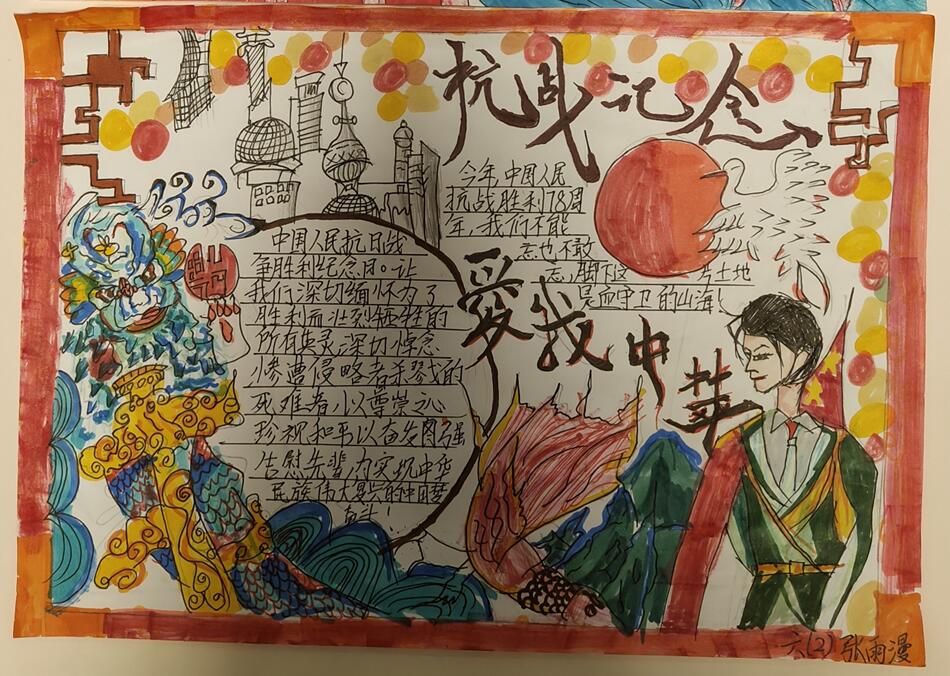 抗战记念
今年中国人民
抗战胜利78周
年,我们不能
忘也不敢
忘,脚下这 方土地
是血守卫的山海!
爱我中华
中国人民抗日战
争胜利纪念日。让
我们深切缅怀为了
胜利而壮烈牺牲的
所有英灵,深切悼念
惨遭侵略者杀戮的
死难者,以尊崇之心
珍视和平以奋发图强
告慰先辈,为实现中华
民族伟大复兴的中国梦
奋斗!
六(2)张雨漫